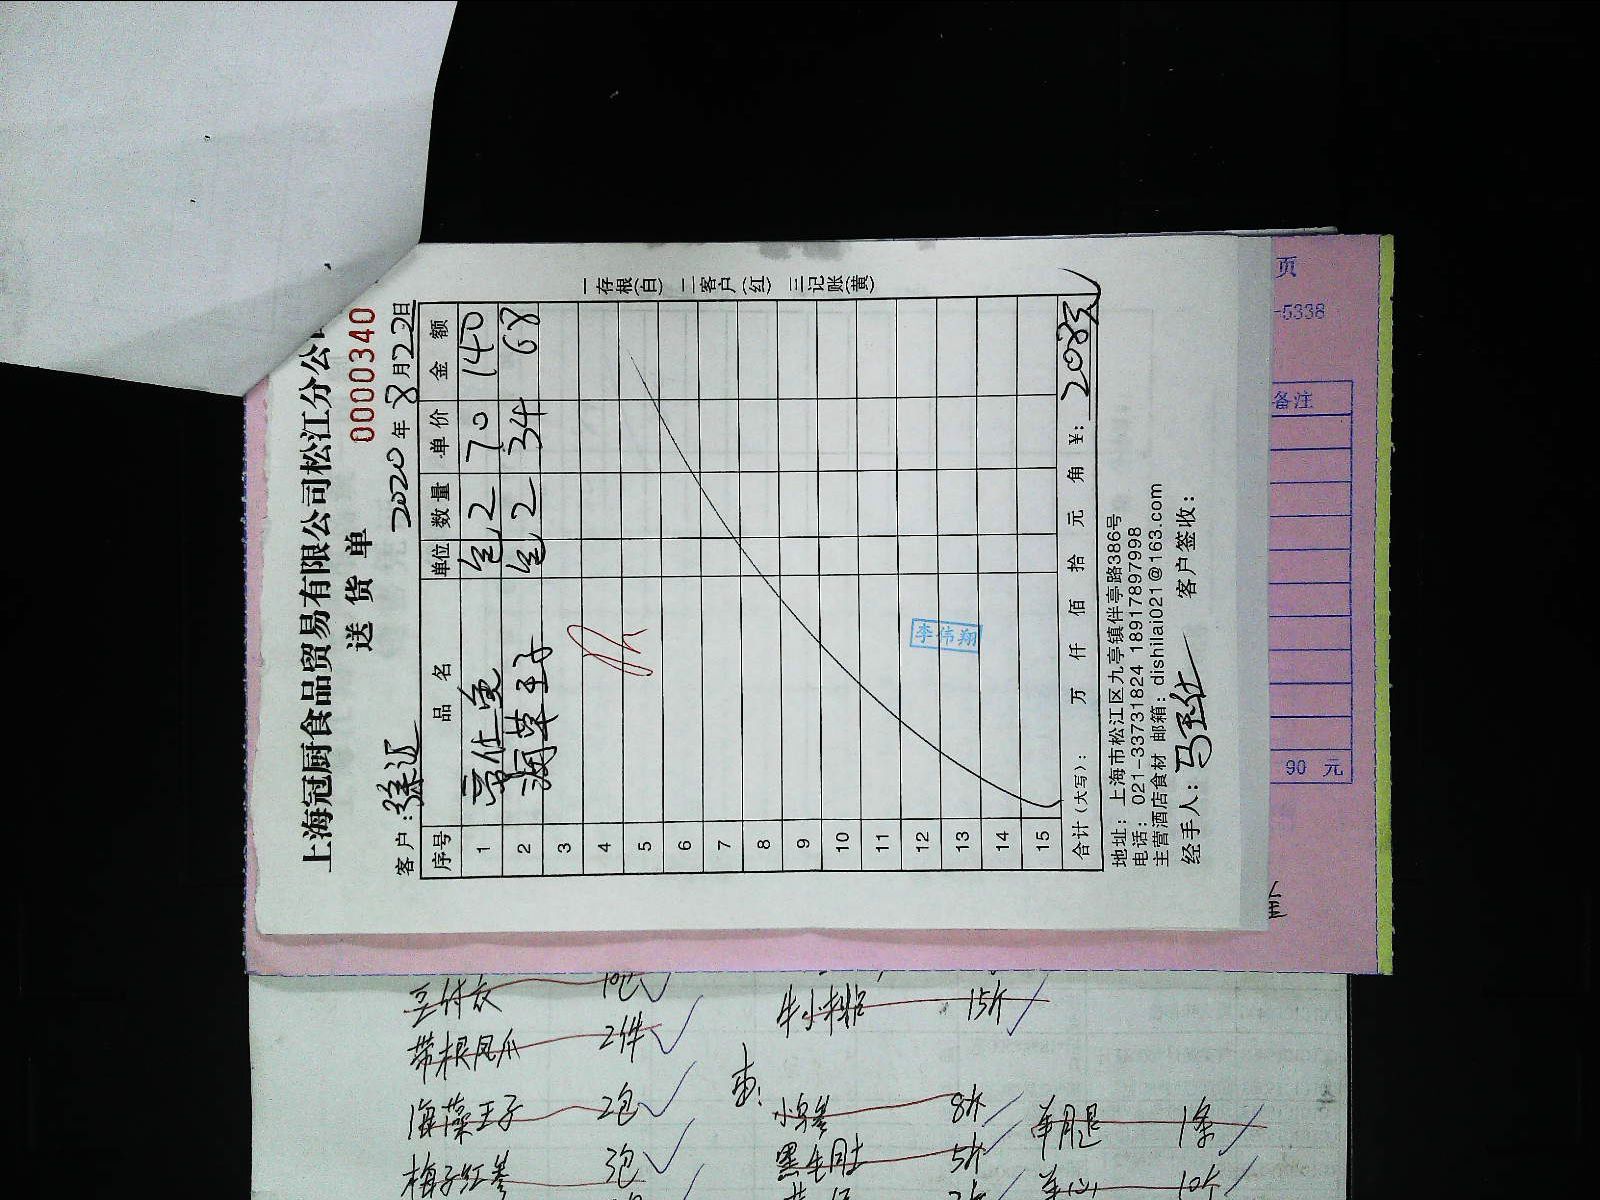 上海冠厨食品贸易有限公司松江分公司
送货单
0000340
客户：徐汇
2020年8月22日
序号 品名 单位 数量 单价 金额
1 包 2 70 140
2 海草王子 包 2 34 68
3
4
5
6
7
8
9
10
11
12
13
14
15
李伟翔
合计（大写）： 万 仟 佰 拾 元 角 ¥：208元
地址：上海市松江区九亭镇伴亭路386号
电话：021-33731824 18917897998
主营酒店食材 邮箱：dishilai021@163.com
经手人： 客户签收：
一存根(白) 二客户(红) 三记账(黄)
页
-5338
备注
90 元
10包
带根凤爪 2件
海藻王子 2包
梅子红参 3包
牛小排 15斤
小乌参 8斤
黑毛肚 5斤
羊腿 1条
10斤